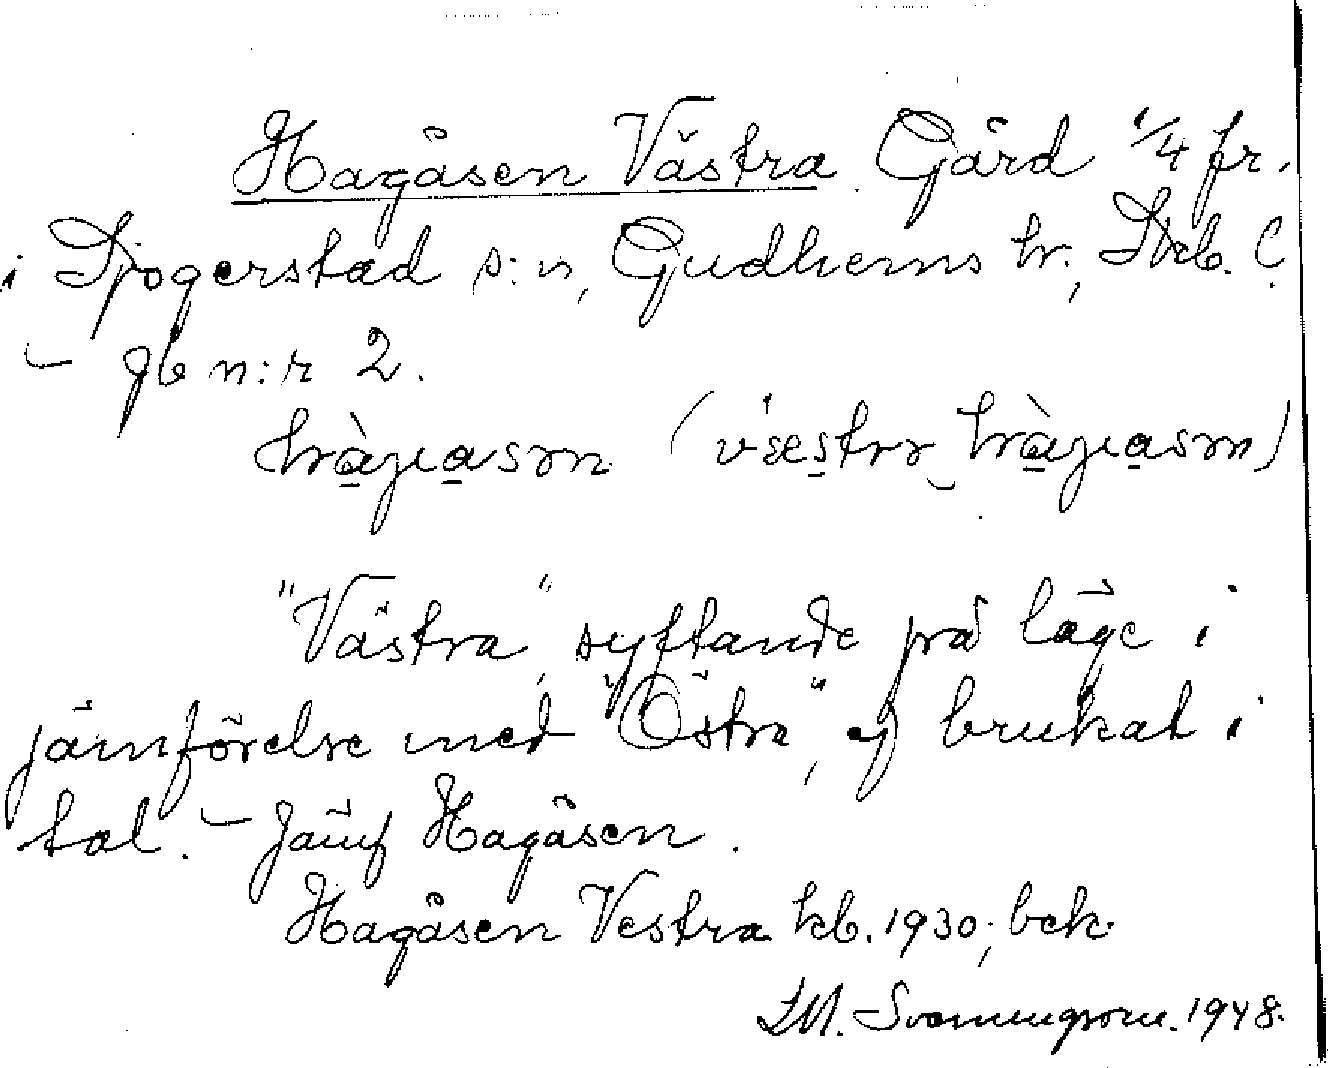 Hagåsen Västra Gård 1/4 fr.
i Sjogerstad s:n, Gudhems hr, Skb. l.
– jb n:r 2.
hàgɑsɷn (vǽstrɷ hàgɑsɷn)
"Västra", syftande på läge i
jämförelse med "Östra", ej brukat i
tal. – Jämf Hagåsen.
Hagåsen Vestra kb. 1930; bek.
1948.